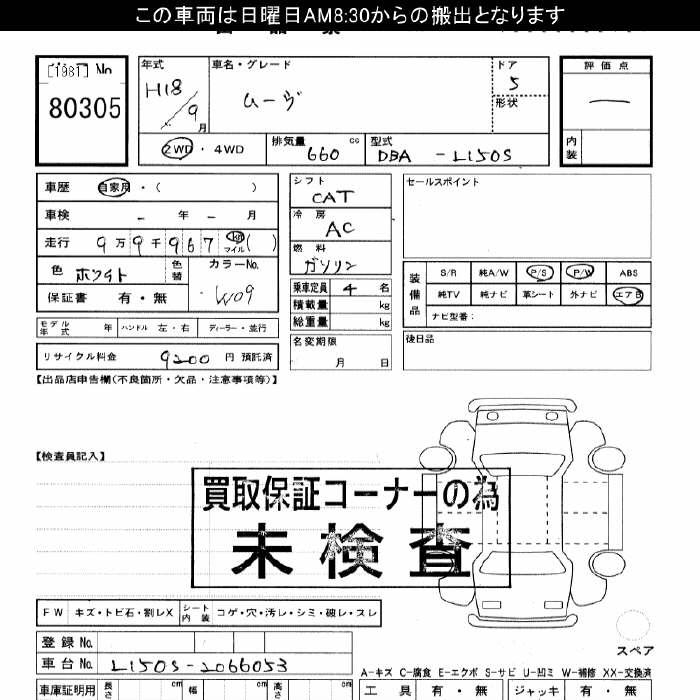 この車両は日曜日AM8:30からの搬出となります
[1981] No
80305
年式
H18/9月
車名・グレード
ムーヴ
ドア
5
形状
評価点
内装
2WD・4WD
排気量
660 cc
型式
DBA - L150S
車歴 自家用・( )
車検 - 年 - 月
走行 9万9千967 km マイル ( )
色 ホワイト 色替
カラーNo.
W09
保証書 有・無
シフト
CAT
冷房
AC
燃料
ガソリン
乗車定員 4 名
積載量 kg
総重量 kg
名変期限
月 日
セールスポイント
装備品
S/R 純A/W P/S P/W ABS
純TV 純ナビ 革シート 外ナビ エアB
ナビ型番:
後日品
モデル年式 年 ハンドル 左・右 ディーラー・並行
リサイクル料金 9200 円 預託済
【出品店申告欄(不良箇所・欠品・注意事項等)】
【検査員記入】
買取保証コーナーの為
未検査
FW キズ・トビ石・割レX シート内装 コゲ・穴・汚レ・シミ・破レ・スレ
登録 No.
車台 No. L150S-2066053
スペア
A-キズ C-腐食 E-エクボ S-サビ U-凹ミ W-補修 XX-交換済
車庫証明用 長さ cm 幅 cm 高さ cm
工具 有・無 ジャッキ 有・無